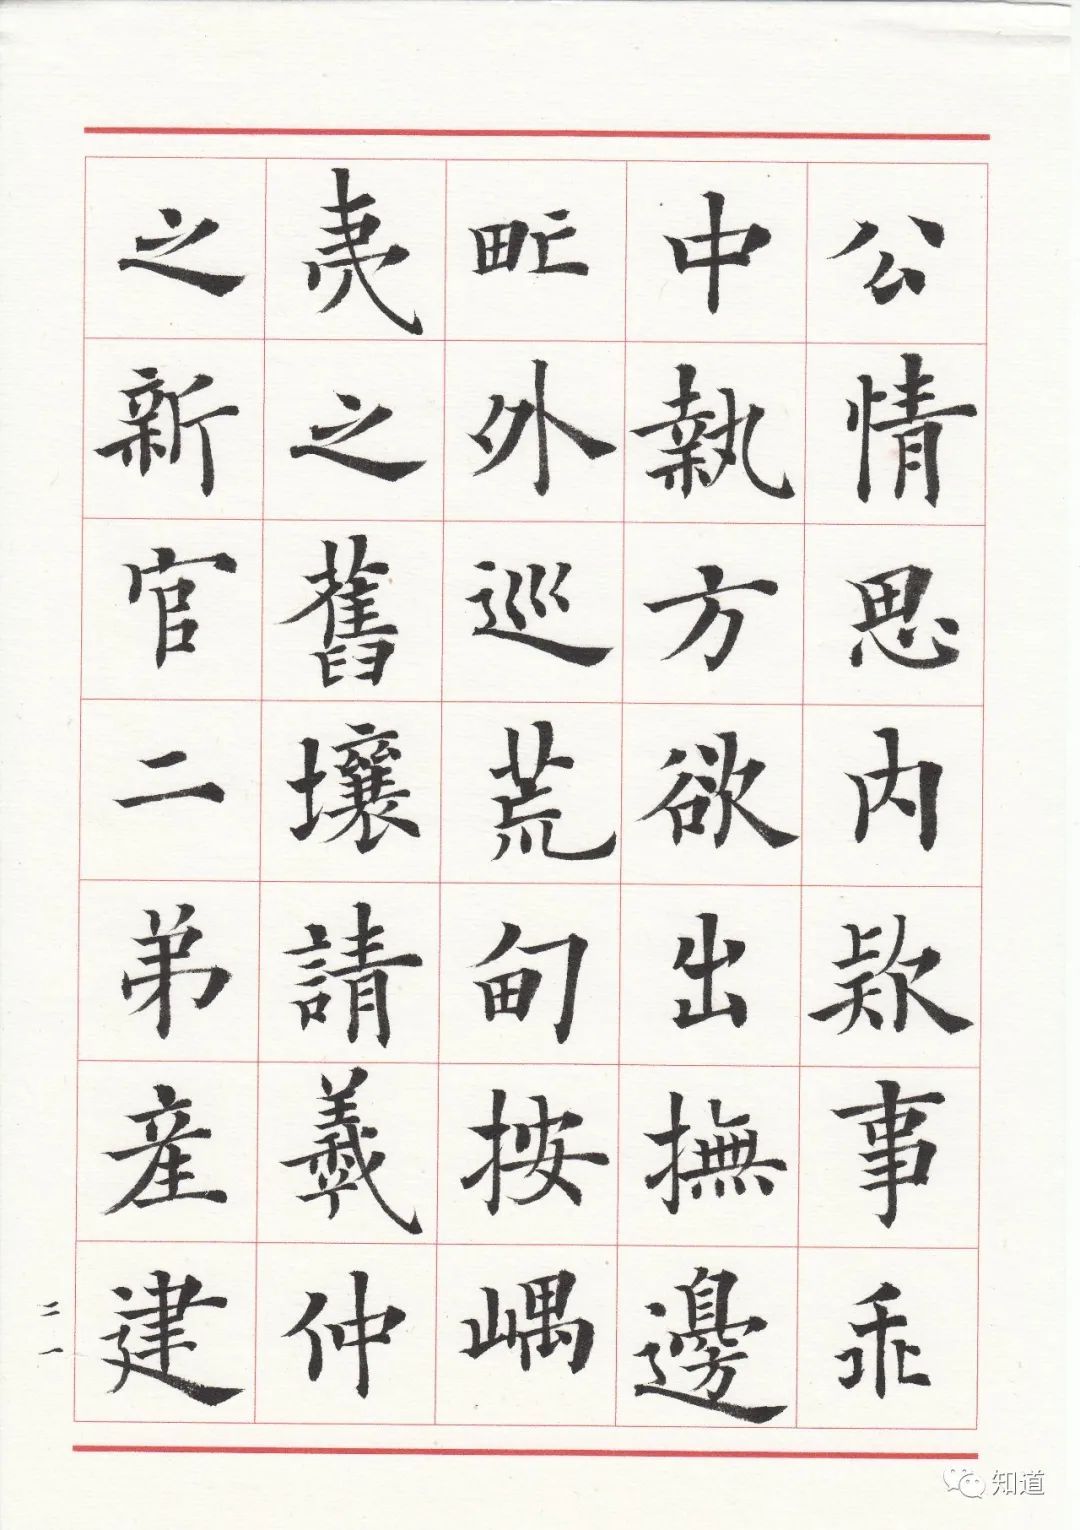 公情思内款事乖
中執方欲出撫邊
甿外巡荒甸按嵎
夷之舊壤請羲仲
之新官二弟產建
二一
知道